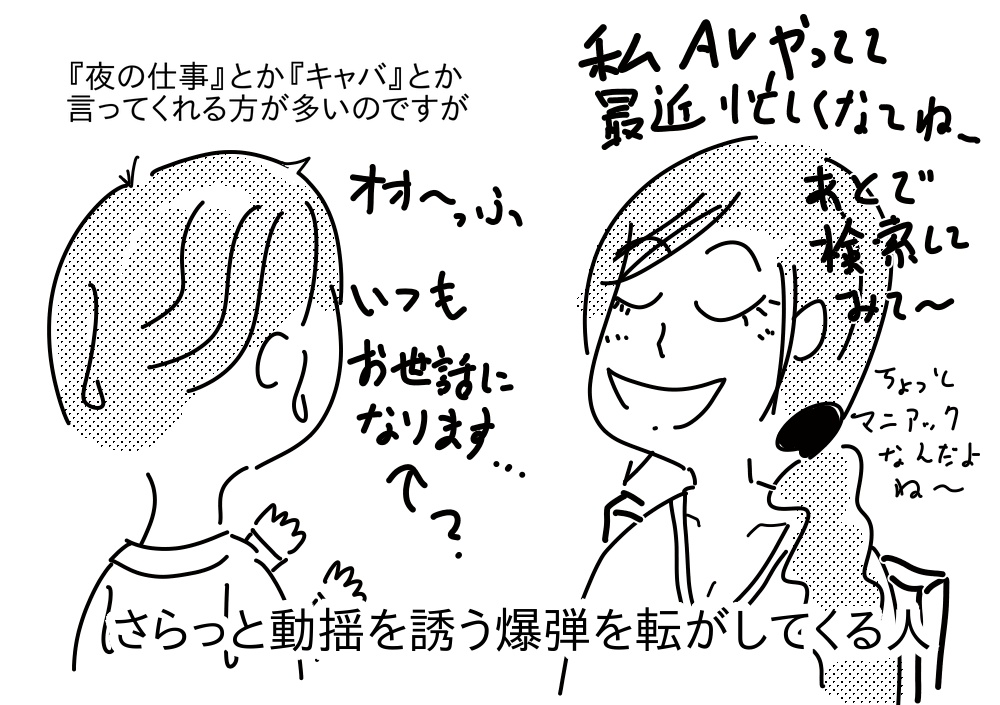 『夜の仕事』とか『キャバ』とか
言ってくれる方が多いのですが
私 AVやってて
最近 忙しくなてね、
あとで
検索して
みて〜
ちょっし
マニアック
なんだよ
ね〜
オオ〜っふ、
いつも
お世話に
なります…
↑
?
さらっと動揺を誘う爆弾を転がしてくる人